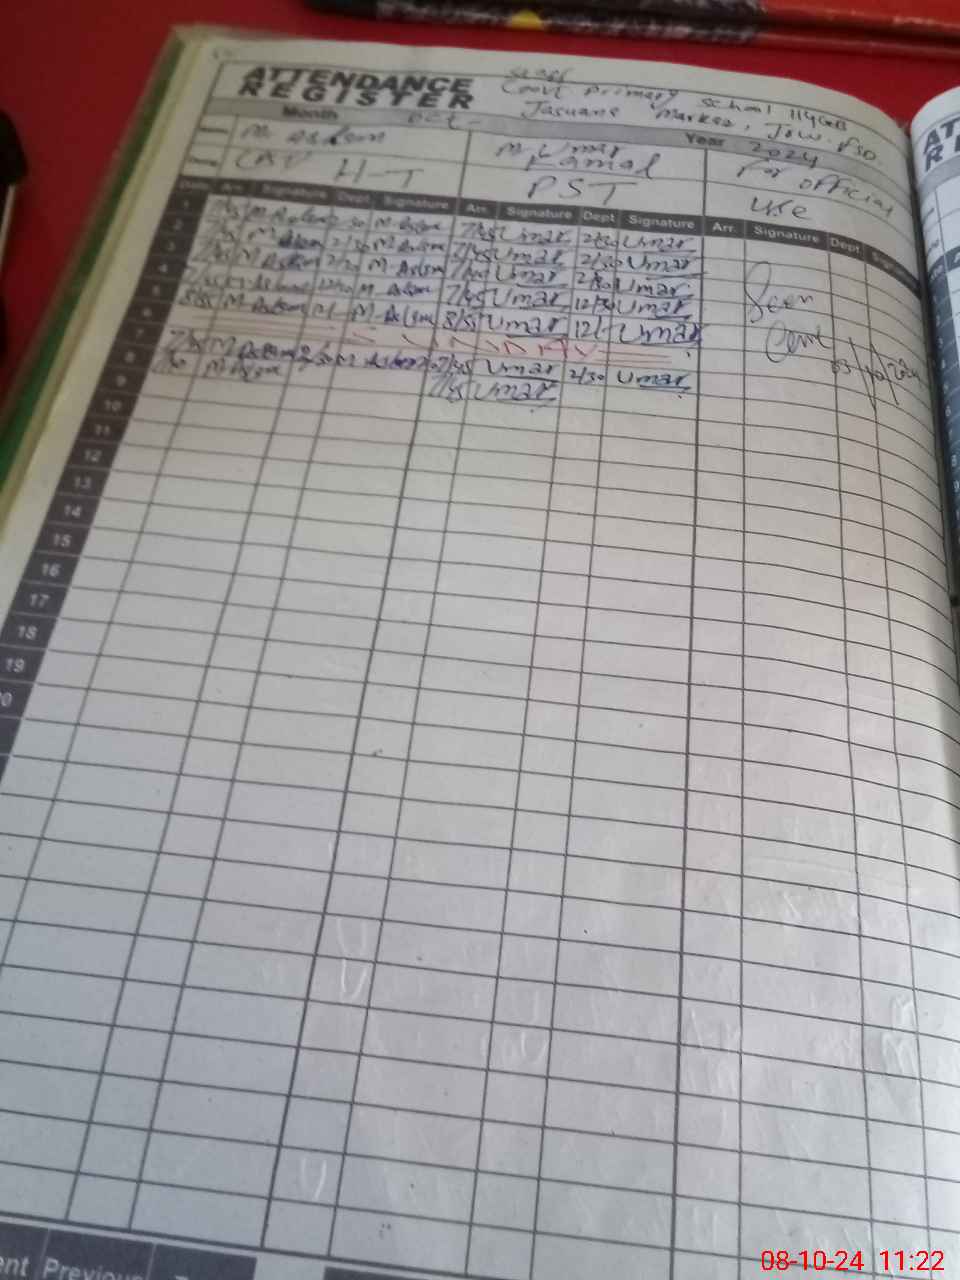 ATTENDANCE
REGISTER
Staff
Govt Primary School 114GB
Jasuana Markaz, JRW. FSD.
Month Oct- Year 2024
M. Aslam M. Umar Kamal For official use
H-T PST
Date Arr. Signature Dept. Signature Arr. Signature Dept. Signature Arr. Signature Dept. Signature
1 7/45 M-Aslam 2/30 M-Aslam 7/45 Umar 2/30 Umar
2 7/45 M-Aslam 2/30 M-Aslam 7/45 Umar 2/30 Umar
3 7/45 M-Aslam 2/30 M-Aslam 7/45 Umar 2/30 Umar Seen
4 7/45 M-Aslam 12/30 M-Aslam 7/45 Umar 12/30 Umar
5 8/55 M-Aslam 12/- M-Aslam 8/55 Umar 12/- Umar
6 SUNDAY
7 7/45 M-Aslam 2/30 M-Aslam 7/45 Umar 2/30 Umar
8 M-Aslam 7/45 Umar
9
10
11
12
13
14
15
16
17
18
19
20
Previous
08-10-24 11:22